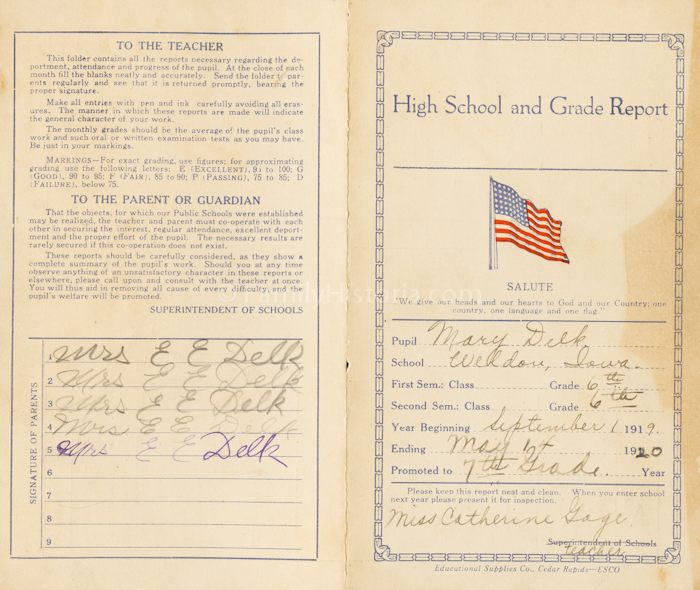 TO THE TEACHER
This folder contains all the reports necessary regarding the de-
portment, attendance and progress of the pupil. At the close of each
month fill the blanks neatly and accurately. Send the folder t par-
ents regularly and see that it is returned promptly, bearing the
proper signature.
Make all entries with pen and ink carefully avoiding all eras-
ures. The manner in which these reports are made will indicate
the general character of your work.
The monthly grades should be the average of the pupil's class
work and such oral or written examination tests as you may have.
Be just in your markings.
MARKINGS—For exact grading, use figures; for approximating
grading use the following letters: E (EXCELLENT), 95 to 100; G
(GOOD), 90 to 95; F (FAIR), 85 to 90; P (PASSING), 75 to 85; D
(FAILURE), below 75.
TO THE PARENT OR GUARDIAN
That the objects, for which our Public Schools were established
may be realized, the teacher and parent must co-operate with each
other in securing the interest, regular attendance, excellent deport-
ment and the proper effort of the pupil. The necessary results are
rarely secured if this co-operation does not exist.
These reports should be carefully considered, as they show a
complete summary of the pupil's work. Should you at any time
observe anything of an unsatisfactory character in these reports or
elsewhere, please call upon and consult with the teacher at once.
You will thus aid in removing all cause of every difficulty, and the
pupil's welfare will be promoted.
SUPERINTENDENT OF SCHOOLS
SIGNATURE OF PARENTS
1 Mrs E E Delk
2 Mrs E E Delk
3 Mrs E E Delk
4 Mrs E E Delk
5 Mrs E E Delk
6
7
8
9
High School and Grade Report
SALUTE
"We give our heads and our hearts to God and our Country; one
country, one language and one flag."
Pupil Mary Delk
School Weldon, Iowa.
First Sem.: Class Grade 6th
Second Sem.: Class Grade 6th
Year Beginning September 1 1919.
Ending May 14 1920
Promoted to 7th Grade. Year
Please keep this report neat and clean. When you enter school
next year please present it for inspection.
Miss Catherine Gage
Superintendent of Schools
teacher
Educational Supplies Co., Cedar Rapids—ESCO
© FamilyHistoria.com